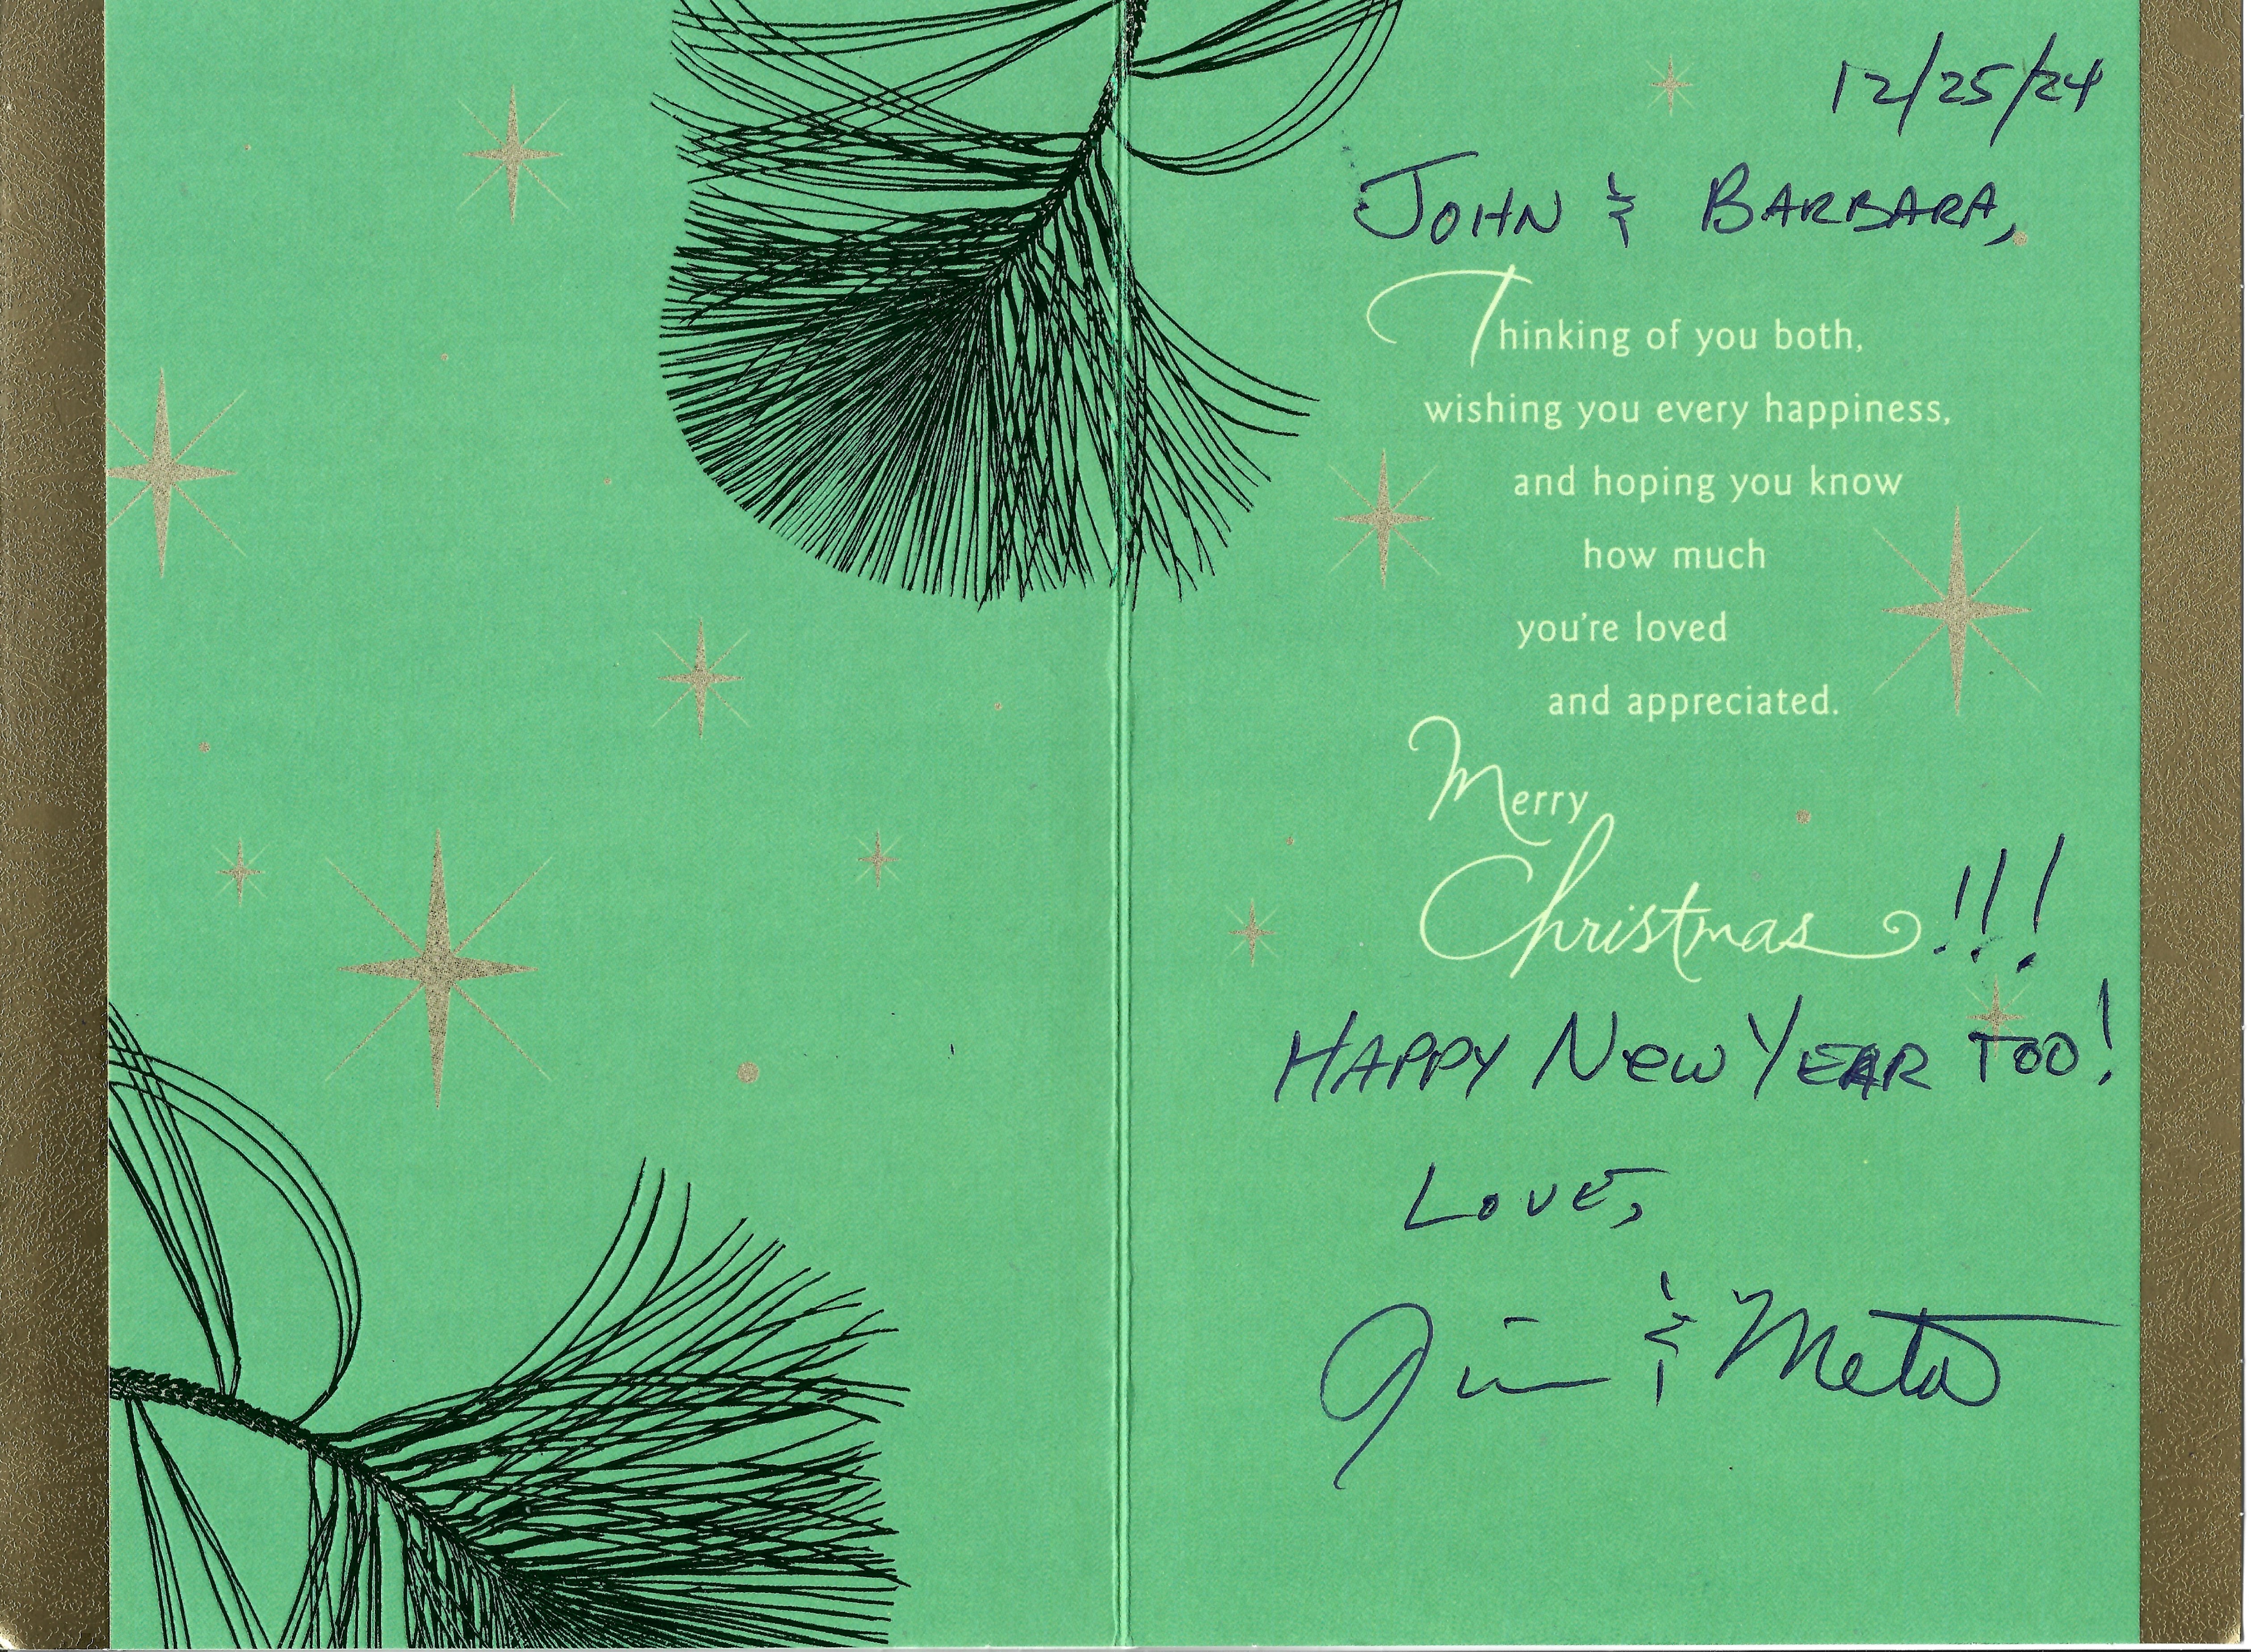 12/25/24
JOHN & BARBARA,
Thinking of you both,
wishing you every happiness,
and hoping you know
how much
you're loved
and appreciated.
Merry
Christmas !!!
HAPPY NEW YEAR TOO!
LOVE,
Jim & Meta